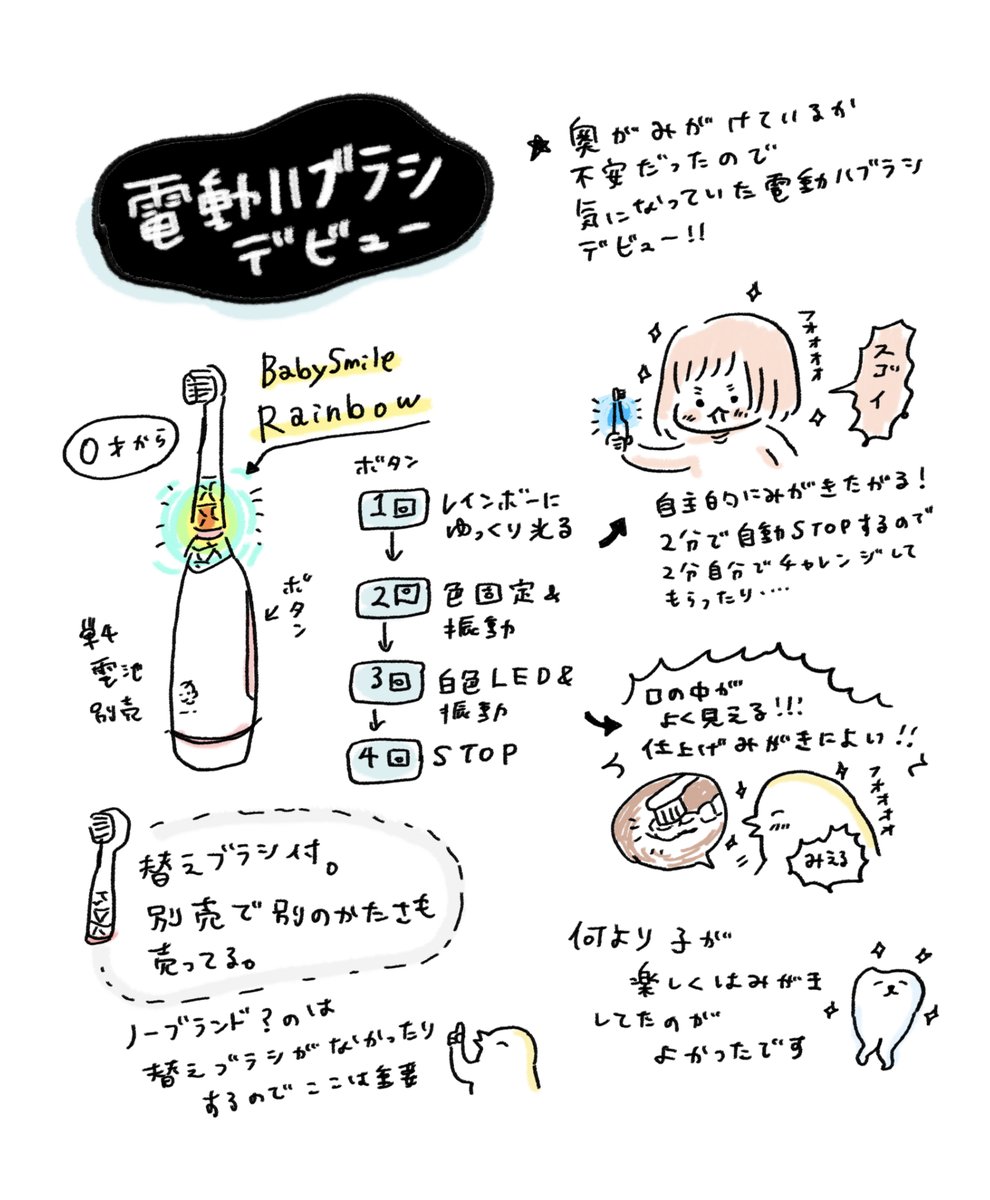 電動ハブラシ
デビュー
★ 奥がみがけているか
不安だったので
気になっていた電動ハブラシ
デビュー!!
BabySmile
Rainbow
0才から
ボタン
単4
電池
別売
ボタン
1回 レインボーに
ゆっくり光る
2回 色固定&
振動
3回 白色LED&
振動
4回 STOP
フォォォォ
スゴイ
自主的にみがきたがる!
2分で自動STOPするので
2分自分でチャレンジして
もらったり・・・・
口の中が
よく見える!!!
仕上げみがきによい!!
フォォォォ
みえる
替えブラシ付。
別売で別のかたさも
売ってる。
ノーブランド?のは
替えブラシがなかったり
するのでここは重要
何より子が
楽しくはみがき
してたのが
よかったです